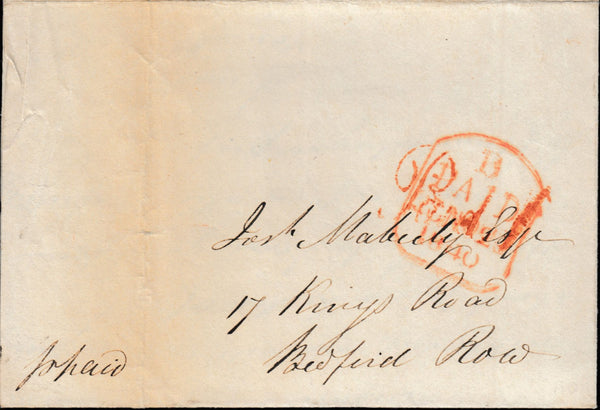 B
PAID
1840
Josh Maberly Esqr
17 Kings Road
Bedford Row
prepaid